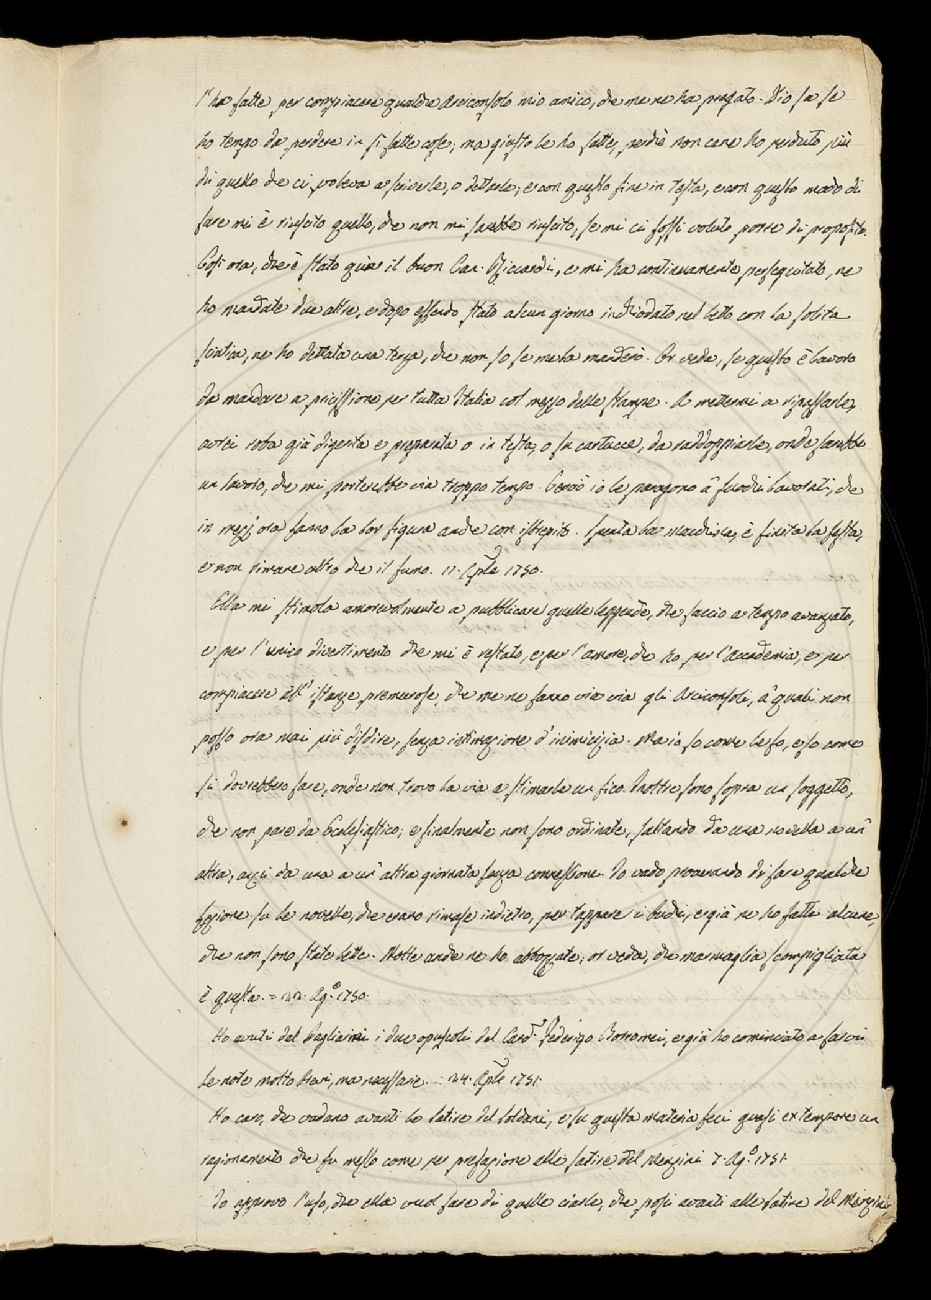 l'ha fatte per compiacere qualche Arciconsolo mio amico, che me ne ha pregato. Dio sa se
ho tempo da perdere in sì fatte cose; ma giusto le ho fatte, perchè non ce ne ho perduto più
di quello che ci voleva a scriverle, o dettarle; e con questo fine in testa, e con questo modo di
fare mi è riuscito quello, che non mi sarebbe riuscito, se mi ci fossi voluto porre di proposito.
Così ora, che è stato quà il buon Can. Riccardi, e mi ha continuamente perseguitato, ne
ho mandate due altre, e dopo essendo stato alcun giorno inchiodato nel letto con la solita
sciatica, ne ho dettata una terza, che non so se me la manderò. Or veda, se questo è lavoro
da mandare a pricissione per tutta Italia col mezzo delle stampe. A mettermi a ripassarle,
avrei roba già digesta e preparata o in testa, o su cartucce, da raddoppiarle, onde sarebbe
un lavoro, che mi porterebbe via troppo tempo. Perciò io le paragono a' fuochi lavorati, che
in mezz'ora fanno la lor figura anche con istrepito. Spenta la macchina, è finita la festa,
e non rimane altro che il fumo. 11. Aprile 1750.
Ella mi stimola amorevolmente a pubblicare quelle leggende, che faccio a tempo avanzato,
e per l'unico divertimento che mi è restato, e per l'amore, che ho per l'Accademia, e per
compiacere all' istanze premurose, che me ne fanno via via gli Arciconsoli, a' quali non
posso ora mai più disdire, senza intimazione d'inimicizia. Ma io so come le fo, e so come
si dovrebbero fare, onde non trovo la via a stimarle un fico. Inoltre sono sopra un soggetto,
che non pare da Ecclesiastico; e finalmente non sono ordinate, saltando da una novella a un'
altra, anzi da una a un' altra giornata senza connessione. Io vado procurando di fare qualche
lezione su le novelle, che erano rimase indietro, per tappare i buchi, e già ne ho fatte alcune,
che non sono state lette. Molte anche ne ho abbozzate; or veda, che marmaglia scompigliata
è questa. = 22. Ag.º 1750.
Ho avuti dal Pagliarini i due opuscoli del Card. Federigo Borromei, e già ho cominciato a farvi
le note molto brevi, ma necessarie. = 24. Aprile 1751.
Ho caro, che vadano avanti le Satire del Soldani, e su questa materia feci quasi ex tempore un
ragionamento che fu messo come per prefazione alle satire del Menzini 7. Ag.º 1751.
Io approvo l'uso, che ella vuol fare di quelle ciarle, che posi avanti alle Satire del Menzini,